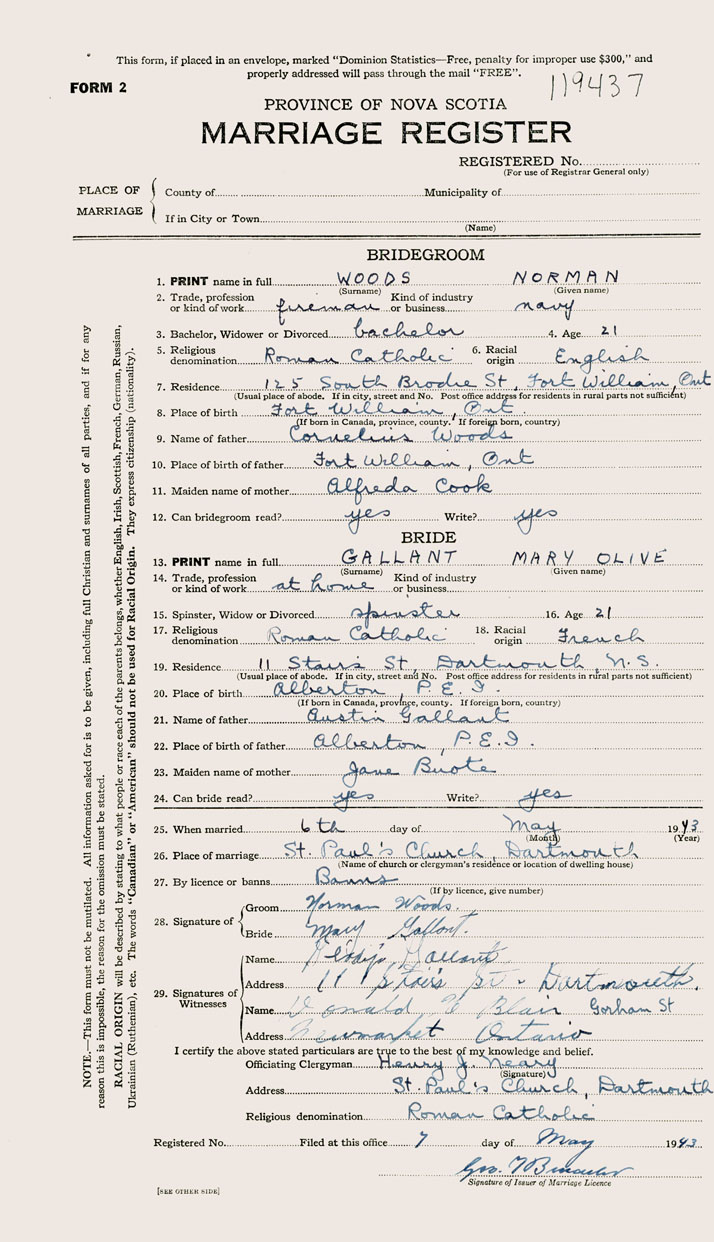 This form, if placed in an envelope, marked "Dominion Statistics—Free, penalty for improper use $300," and
properly addressed will pass through the mail "FREE".
119437
FORM 2
PROVINCE OF NOVA SCOTIA
MARRIAGE REGISTER
REGISTERED No.
(For use of Registrar General only)
PLACE OF MARRIAGE
County of Municipality of
If in City or Town
(Name)
BRIDEGROOM
1. PRINT name in full WOODS NORMAN
(Surname) (Given name)
2. Trade, profession or kind of work fireman Kind of industry or business navy
3. Bachelor, Widower or Divorced bachelor 4. Age 21
5. Religious denomination Roman Catholic 6. Racial origin English
7. Residence 125 South Brodie St, Fort William, Ont
(Usual place of abode. If in city, street and No. Post office address for residents in rural parts not sufficient)
8. Place of birth Fort William, Ont.
(If born in Canada, province, county. If foreign born, country)
9. Name of father Cornelius Woods
10. Place of birth of father Fort William, Ont
11. Maiden name of mother Alfreda Cook
12. Can bridegroom read? yes Write? yes
BRIDE
13. PRINT name in full GALLANT MARY OLIVE
(Surname) (Given name)
14. Trade, profession or kind of work at home Kind of industry or business
15. Spinster, Widow or Divorced spinster 16. Age 21
17. Religious denomination Roman Catholic 18. Racial origin French
19. Residence 11 Stairs St, Dartmouth, N.S.
(Usual place of abode. If in city, street and No. Post office address for residents in rural parts not sufficient)
20. Place of birth Alberton, P.E.I.
(If born in Canada, province, county. If foreign born, country)
21. Name of father Austin Gallant
22. Place of birth of father Alberton, P.E.I.
23. Maiden name of mother Jane Buote
24. Can bride read? yes Write? yes
25. When married 6th day of May 1943
(Month) (Year)
26. Place of marriage St. Paul's Church, Dartmouth
(Name of church or clergyman's residence or location of dwelling house)
27. By licence or banns Banns
(If by licence, give number)
28. Signature of
Groom Norman Woods.
Bride Mary Gallant.
29. Signatures of Witnesses
Name Gallant
Address 11 Stairs St. Dartmouth.
Name Donald Blair Gorham St
Address Newmarket Ontario
I certify the above stated particulars are true to the best of my knowledge and belief.
Officiating Clergyman Henry J. Neary
(Signature)
Address St. Paul's Church, Dartmouth
Religious denomination Roman Catholic
Registered No. Filed at this office 7 day of May 1943
Geo.
Signature of Issuer of Marriage Licence
[SEE OTHER SIDE]
NOTE.—This form must not be mutilated. All information asked for is to be given, including full Christian and surnames of all parties, and if for any
reason this is impossible, the reason for the omission must be stated.
RACIAL ORIGIN will be described by stating to what people or race each of the parents belongs, whether English, Irish, Scottish, French, German, Russian,
Ukrainian (Ruthenian), etc. The words "Canadian" or "American" should not be used for Racial Origin. They express citizenship (nationality).